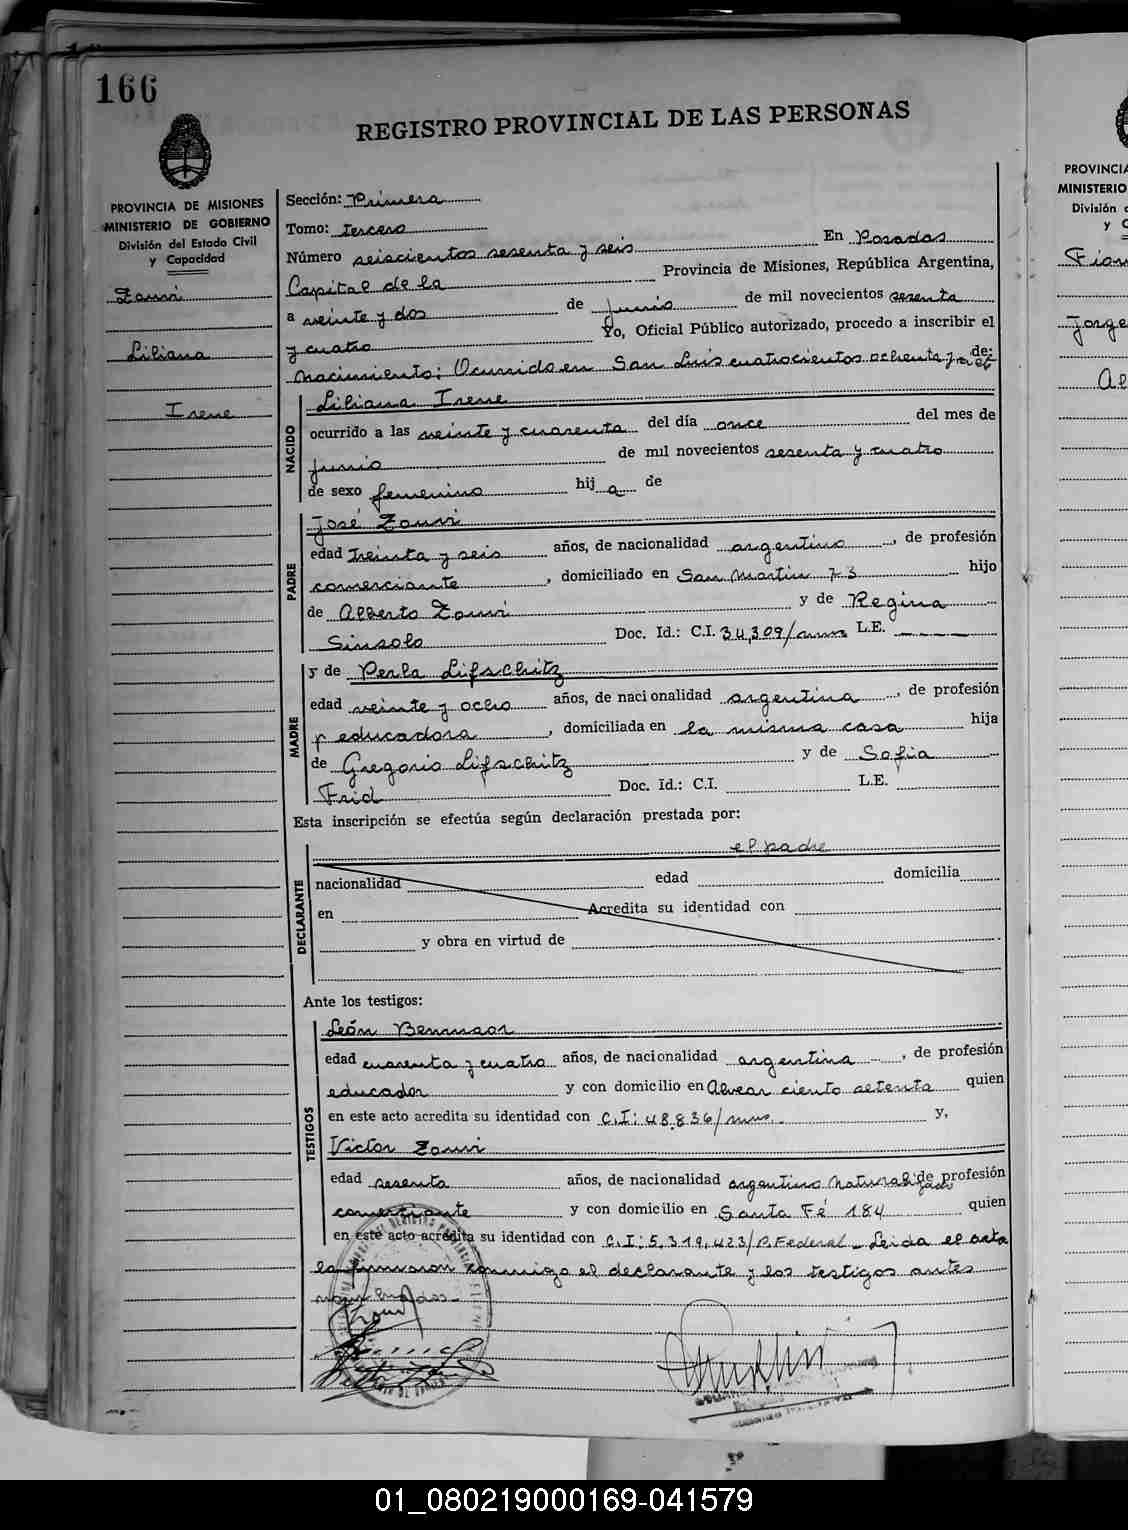 166
REGISTRO PROVINCIAL DE LAS PERSONAS
PROVINCIA DE MISIONES
MINISTERIO DE GOBIERNO
División del Estado Civil
y Capacidad
Zouvi
Liliana
Irene
Sección: Primera
Tomo: tercero
Número seiscientos sesenta y seis En Posadas
Capital de la Provincia de Misiones, República Argentina,
a veinte y dos de junio de mil novecientos sesenta
y cuatro Yo, Oficial Público autorizado, procedo a inscribir el
nacimiento; Ocurrido en San Luis cuatrocientos ochenta y de:
NACIDO
Liliana Irene
ocurrido a las veinte y cuarenta del día once del mes de
junio de mil novecientos sesenta y cuatro
de sexo femenino hij a de
PADRE
José Zouvi
edad treinta y seis años, de nacionalidad argentino, de profesión
comerciante, domiciliado en San Martin 73 hijo
de Alberto Zouvi y de Regina
Sinsolo Doc. Id.: C.I. 34,309/mnes L.E.
MADRE
y de Perla Lifschitz
edad veinte y ocho años, de nacionalidad argentina, de profesión
educadora, domiciliada en la misma casa hija
de Gregorio Lifschitz y de Sofia
Frid Doc. Id.: C.I. L.E.
Esta inscripción se efectúa según declaración prestada por:
DECLARANTE
el padre
nacionalidad edad domicilia
en Acredita su identidad con
y obra en virtud de
Ante los testigos:
TESTIGOS
León Bennasar
edad cuarenta y cuatro años, de nacionalidad argentina, de profesión
educador y con domicilio en Alvear ciento setenta quien
en este acto acredita su identidad con C.I: 48.836/mnes. y,
Victor Zouvi
edad sesenta años, de nacionalidad argentino naturalizado de profesión
comerciante y con domicilio en Santa Fé 184 quien
en este acto acredita su identidad con C.I: 5,319,423/P.Federal - Leida el acta
la firmaron conmigo el declarante y los testigos antes
nombrados.-
PROVINCIA
MINISTERIO
División
y C
Jorge
Al
01_080219000169-041579